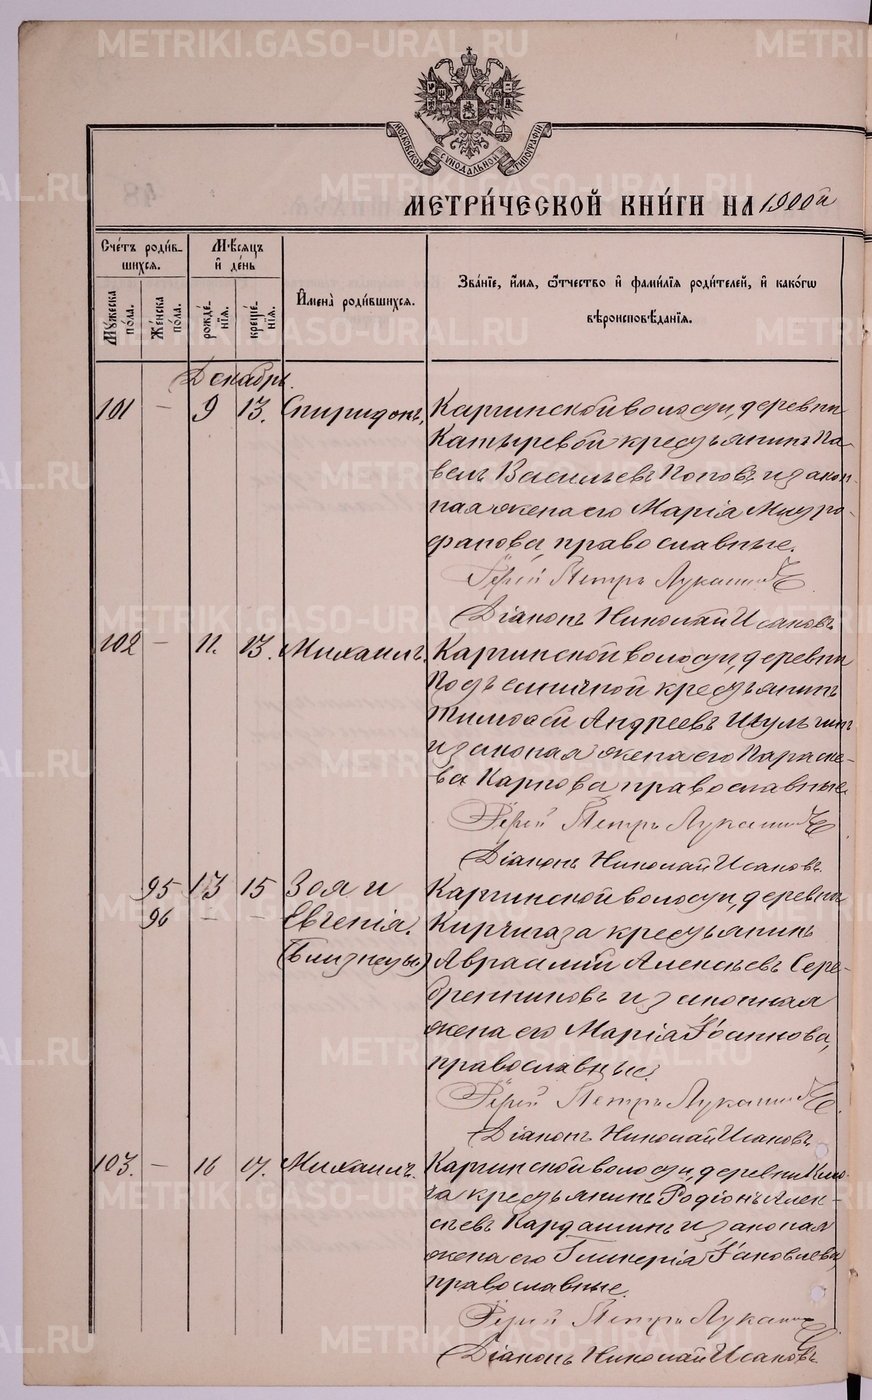 METRIKI.GASO-URAL.RU
МОСКОВСКОЙ СУНОДАЛЬНОЙ ТИПОГРАФІИ
МЕТРИ́ЧЕСКОЙ КНИ́ГИ НА 1900й
Сче́тъ роди́в-
шихся.
М҃ѣсяцъ
и де́нь
Му́жеска по́ла.
Же́нска по́ла.
рожде́-
нія.
креще́-
нія.
Имена̀ роди́вшихся.
Зва́ніе, и́мя, ѻ҆́тчество и фами́лія роди́телей, и како́гѡ
вѣроисповѣ́данія.
Декабрь.
101 — 9 13. Спиридонъ, Каргинской волости, деревни
Катыревой крестьянинъ Па-
велъ Васильевъ Поповъ и закон-
ная жена его Марія Митро-
фанова, православные.
Іерей Петръ Лукашинъ
Діаконъ Николай Исаковъ.
102 — 11. 13. Михаилъ. Каргинской волости, деревни
Подъеличной крестьянинъ
Тимофей Андреевъ Шульгинъ
и законая жена его Параске-
ва Карпова православные.
Іерей Петръ Лукашинъ
Діаконъ Николай Исаковъ.
95 13 15 Зоя и Каргинской волости, деревни
96 — — Евгенія. Киргигаза крестьянинъ
(близнецы.) Авраамій Алексѣевъ Сере-
бренниковъ и законная
жена его Марія Іоаннова,
православные.
Іерей Петръ Лукашинъ
Діаконъ Николай Исаковъ
103. — 16 17. Михаилъ. Каргинской волости, деревни
га крестьянинъ Родіонъ Алек-
сѣевъ Кардашинъ и законая
жена его Гликерія Іаковлева,
православные.
Іерей Петръ Лукашинъ
Діаконъ Николай Исаковъ.